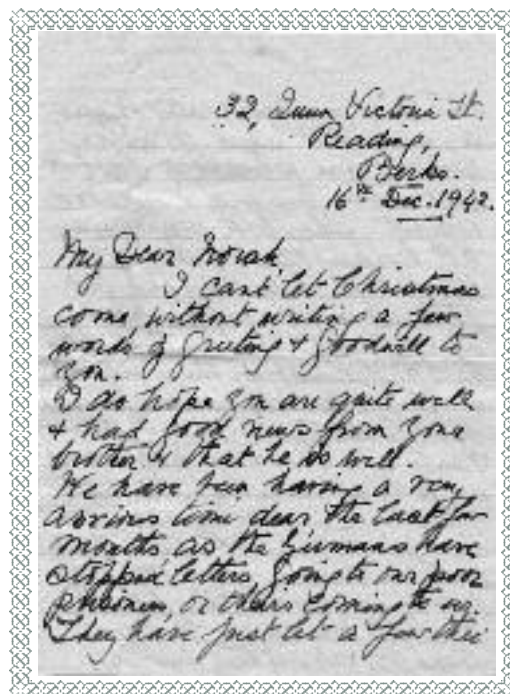 32, Queen Victoria St.
Reading,
Berks.
16th Dec. 1942.
My Dear Norah,
I cant let Christmas
come, without writing a few
words of greeting & goodwill to
you.
I do hope you are quite well
& had good news from your
brother & that he is well.
We have been having a very
anxious time dear, the last few
months as the Germans have
stopped letters going to our poor
prisoners, or theirs coming to us.
They have just let a few thro